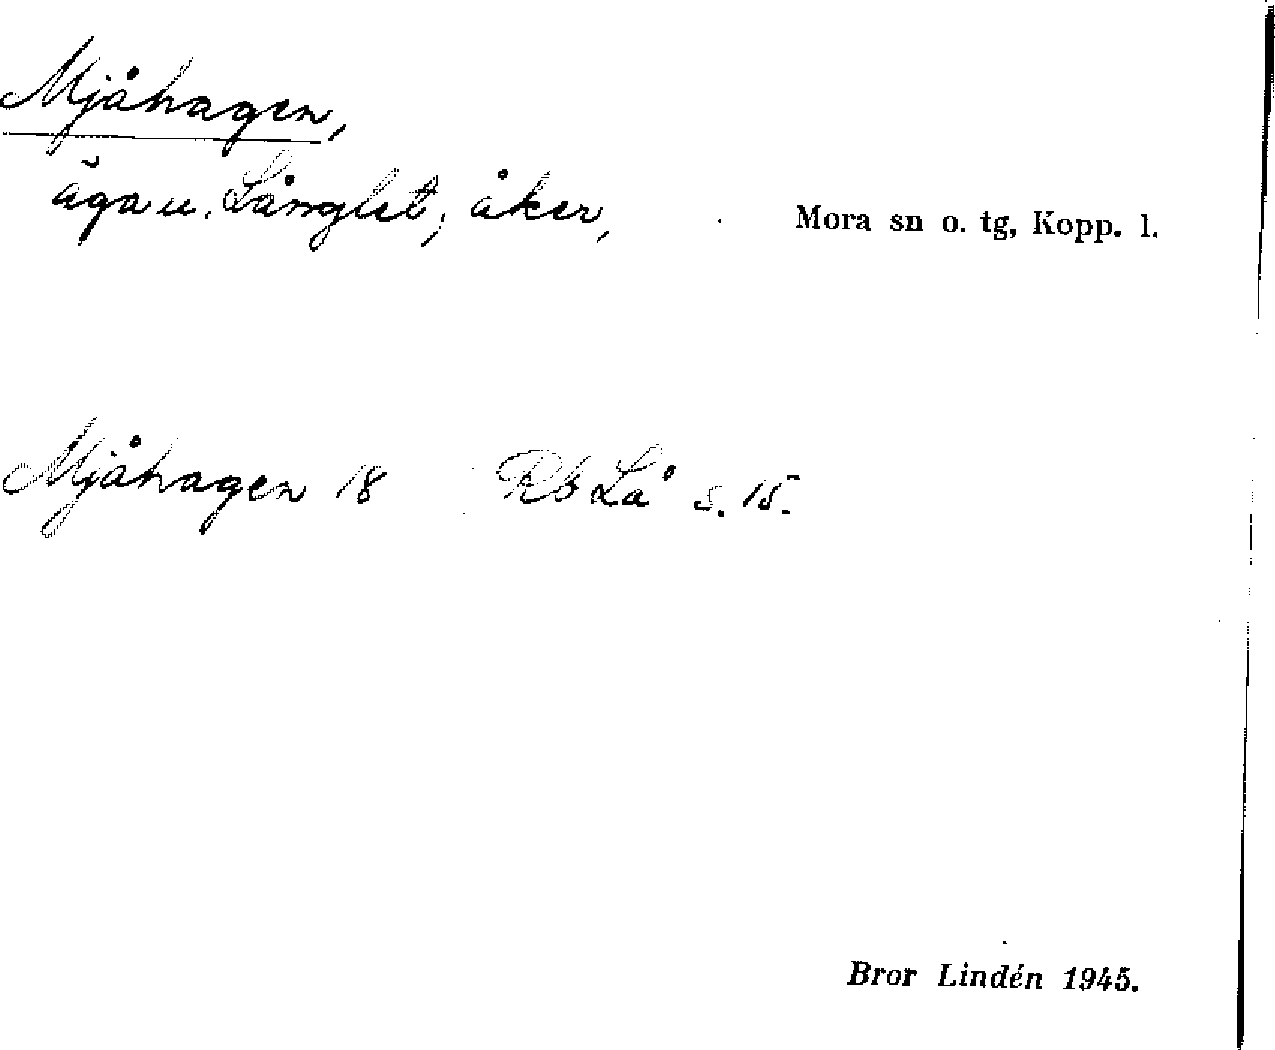 Mjåhagen,
äga u. Långlet, åker, Mora sn o. tg, Kopp. l.
Mjåhagen 18 Rb Lå s. 15.
Bror Lindén 1945.